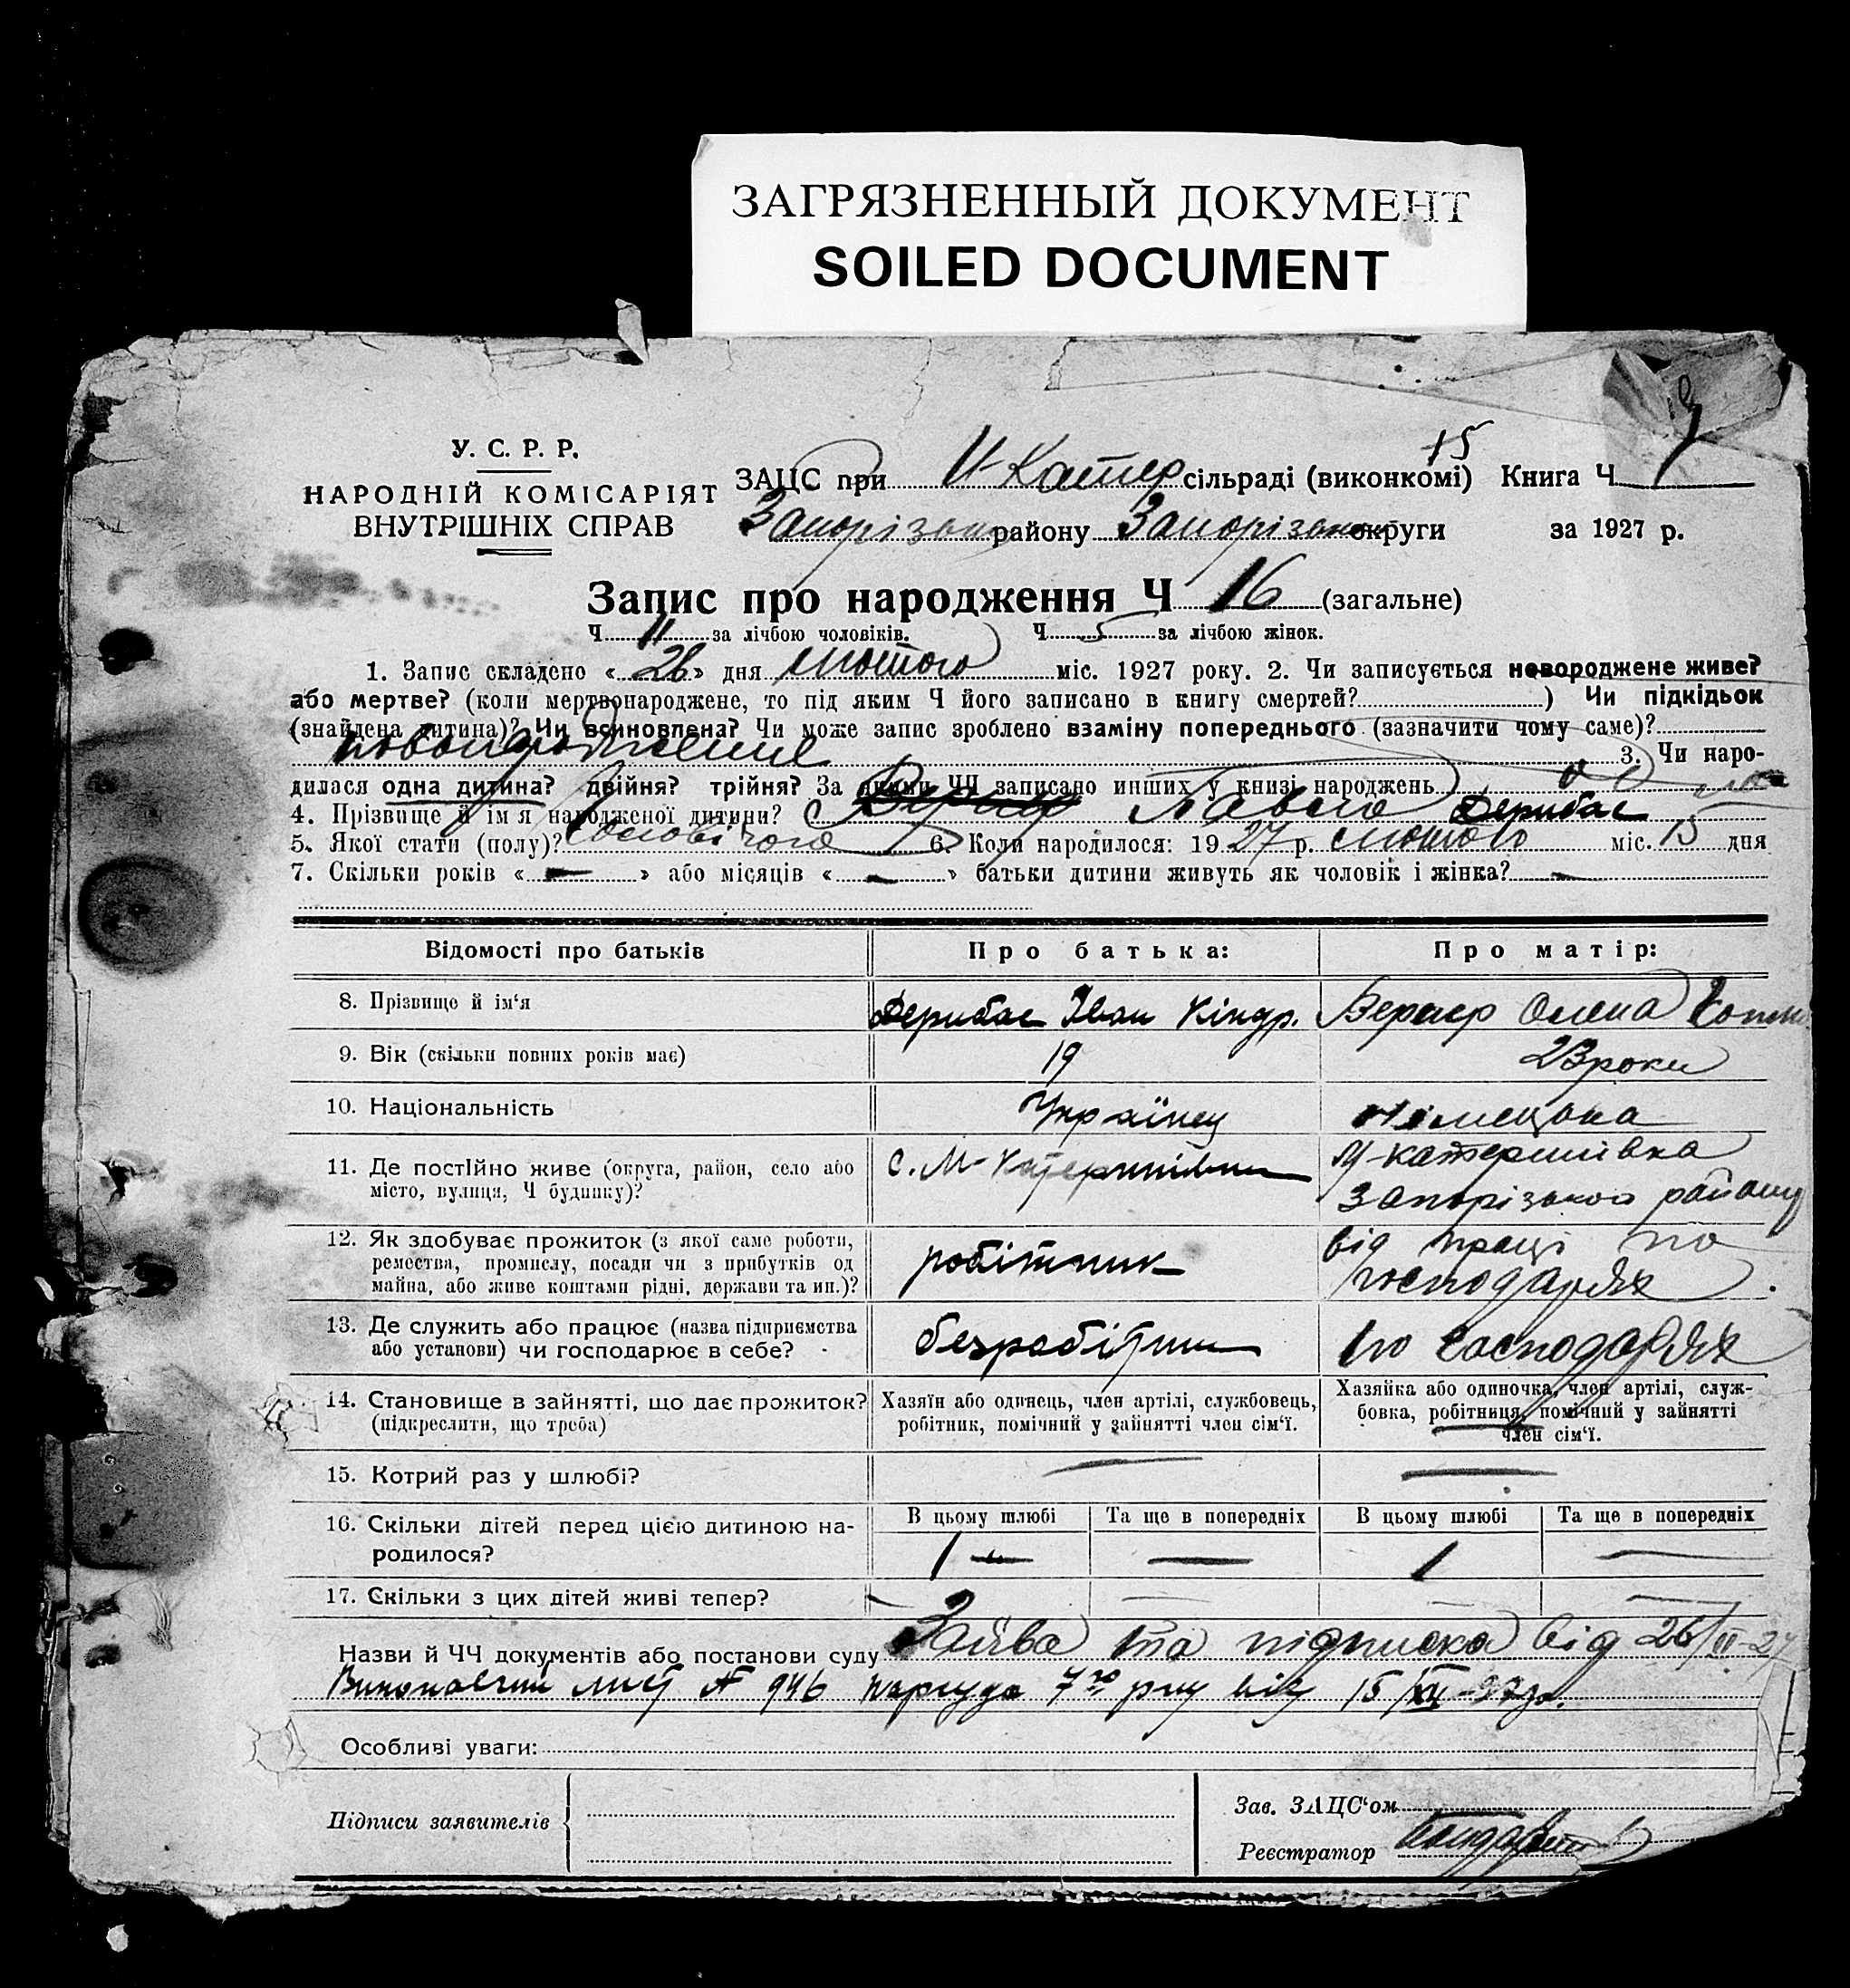 ЗАГРЯЗНЕННЫЙ ДОКУМЕНТ
SOILED DOCUMENT
15
У. С. Р. Р.
НАРОДНІЙ КОМІСАРІЯТ
ВНУТРІШНІХ СПРАВ
ЗАЦС при Катер сільраді (виконкомі) Книга Ч
району округи за 1927 р.
Запис про народження Ч 16 (загальне)
Ч 11 за лічбою чоловіків. Ч 5 за лічбою жінок.
1. Запис складено « 26 » дня лютого міс. 1927 року. 2. Чи записується новороджене живе?
або мертве? (коли мертвонароджене, то під яким Ч його записано в книгу смертей? ) Чи підкідьок
(знайдена дитина)? Чи всиновлена? Чи може запис зроблено взаміну попереднього (зазначити чому саме)?
3. Чи наро-
дилася одна дитина? двійня? трійня? За якими ЧЧ записано инших у книзі народжень
4. Прізвище й ім'я народженої дитини? Павло Дерибас
5. Якої стати (полу)? 6. Коли народилося: 19 27 р. лютого міс. 15 дня
7. Скільки років « — » або місяців « — » батьки дитини живуть як чоловік і жінка? —
Відомості про батьків Про батька: Про матір:
8. Прізвище й ім‘я Дерибас Іван Кіндр. Олена
9. Вік (скільки повних років має) 19 23 роки
10. Національність Українец німецька
11. Де постійно живе (округа, район, село або
місто, вулиця, Ч будинку)?
с. М-Катеринівка
катеринівка
Запорізького району
12. Як здобуває прожиток (з якої саме роботи,
ремества, промислу, посади чи з прибутків од
майна, або живе коштами рідні, держави та ин.)?
робітник
від праці по
господарях
13. Де служить або працює (назва підприємства
або установи) чи господарює в себе?
безробітний
по господарях
14. Становище в зайнятті, що дає прожиток?
(підкреслити, що треба)
Хазяїн або одинець, член артілі, службовець,
робітник, помічний у зайнятті член сім‘ї.
Хазяйка або одиночка, член артілі, служ-
бовка, робітниця, помічний у зайнятті
член сім‘ї.
15. Котрий раз у шлюбі? — —
16. Скільки дітей перед цією дитиною на-
родилося?
В цьому шлюбі Та ще в попередніх В цьому шлюбі Та ще в попередніх
1 — — 1 —
17. Скільки з цих дітей живі тепер? — — — —
Назви й ЧЧ документів або постанови суду Заява та підписка від 26/II-27
Виконавчий лист № 946 нарсуда 7го р-ну від 15/XII-27р.
Особливі уваги:
Підписи заявителів
Зав. ЗАЦС‘ом
Реєстратор